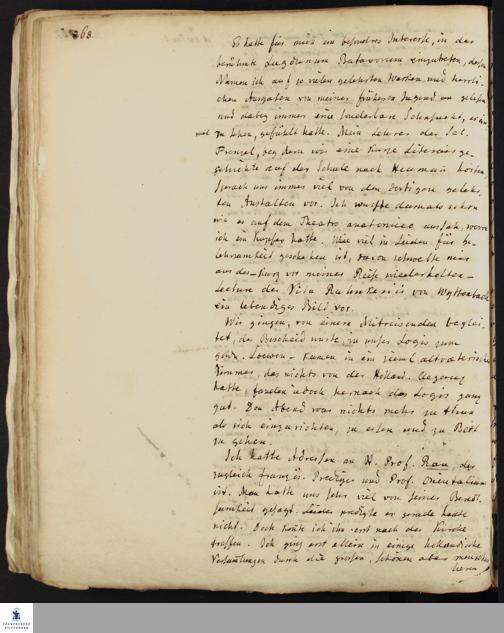 68.
Es hatte für mich ein besondres Interesse, in das
berühmte Lugdunum Batavorum einzutreten, dessen
Namen ich auf so vielen gelehrten Werken, und herrli-
chen Ausgaben von meiner frühesten Jugend an gelesen
und dabey immer eine sonderbare Sehnsucht, es ein
mal zu sehen, gefühlt hatte. Mein Lehrer der sel.
Frenzel, bey dem wir eine kurze Literärge-
schichte auf der Schule nach Heumann hörten,
sprach uns immer viel von den dortigen gelehr-
ten Anstalten vor. Ich wusste damals schon
wie es auf dem Theatro anatomico aussah, wovon
ich ein Kupfer hatte. Wie viel in Leiden für Ge-
lehrsamkeit geschehen ist, davon schwebte mir
aus der kurz vor meiner Reise wiederholten
Lecture der Vita Ruhnkenii von Wyttenbach
ein lebendiges Bild vor.
Wir gingen, von einem Mitreisenden beglei-
tet, der Bescheid wuste, in unser Logis zum
Loewen - kamen in ein altväterisches
Zimmer, das nichts von der Holländ.
hatte, fanden jedoch hernach das Logis ganz
gut. Den Abend war nichts mehr zu thun
als sich einzurichten, zu essen und zu Bett
zu gehen.
Ich hatte Adressen an H. Prof. Rau, der
zugleich französ. Prediger und Prof. Orientalium
ist. Man hatte uns sehr viel von seiner Beredt-
samkeit gesagt. Leider predigte er gerade heute
nicht. Doch konte ich ihn erst nach der Kirche
treffen. Ich ging erst allein in einige holländische
Versamlungen durch die großen, schönen aber menschen
leeren
FRANCKESCHE
STIFTUNGEN